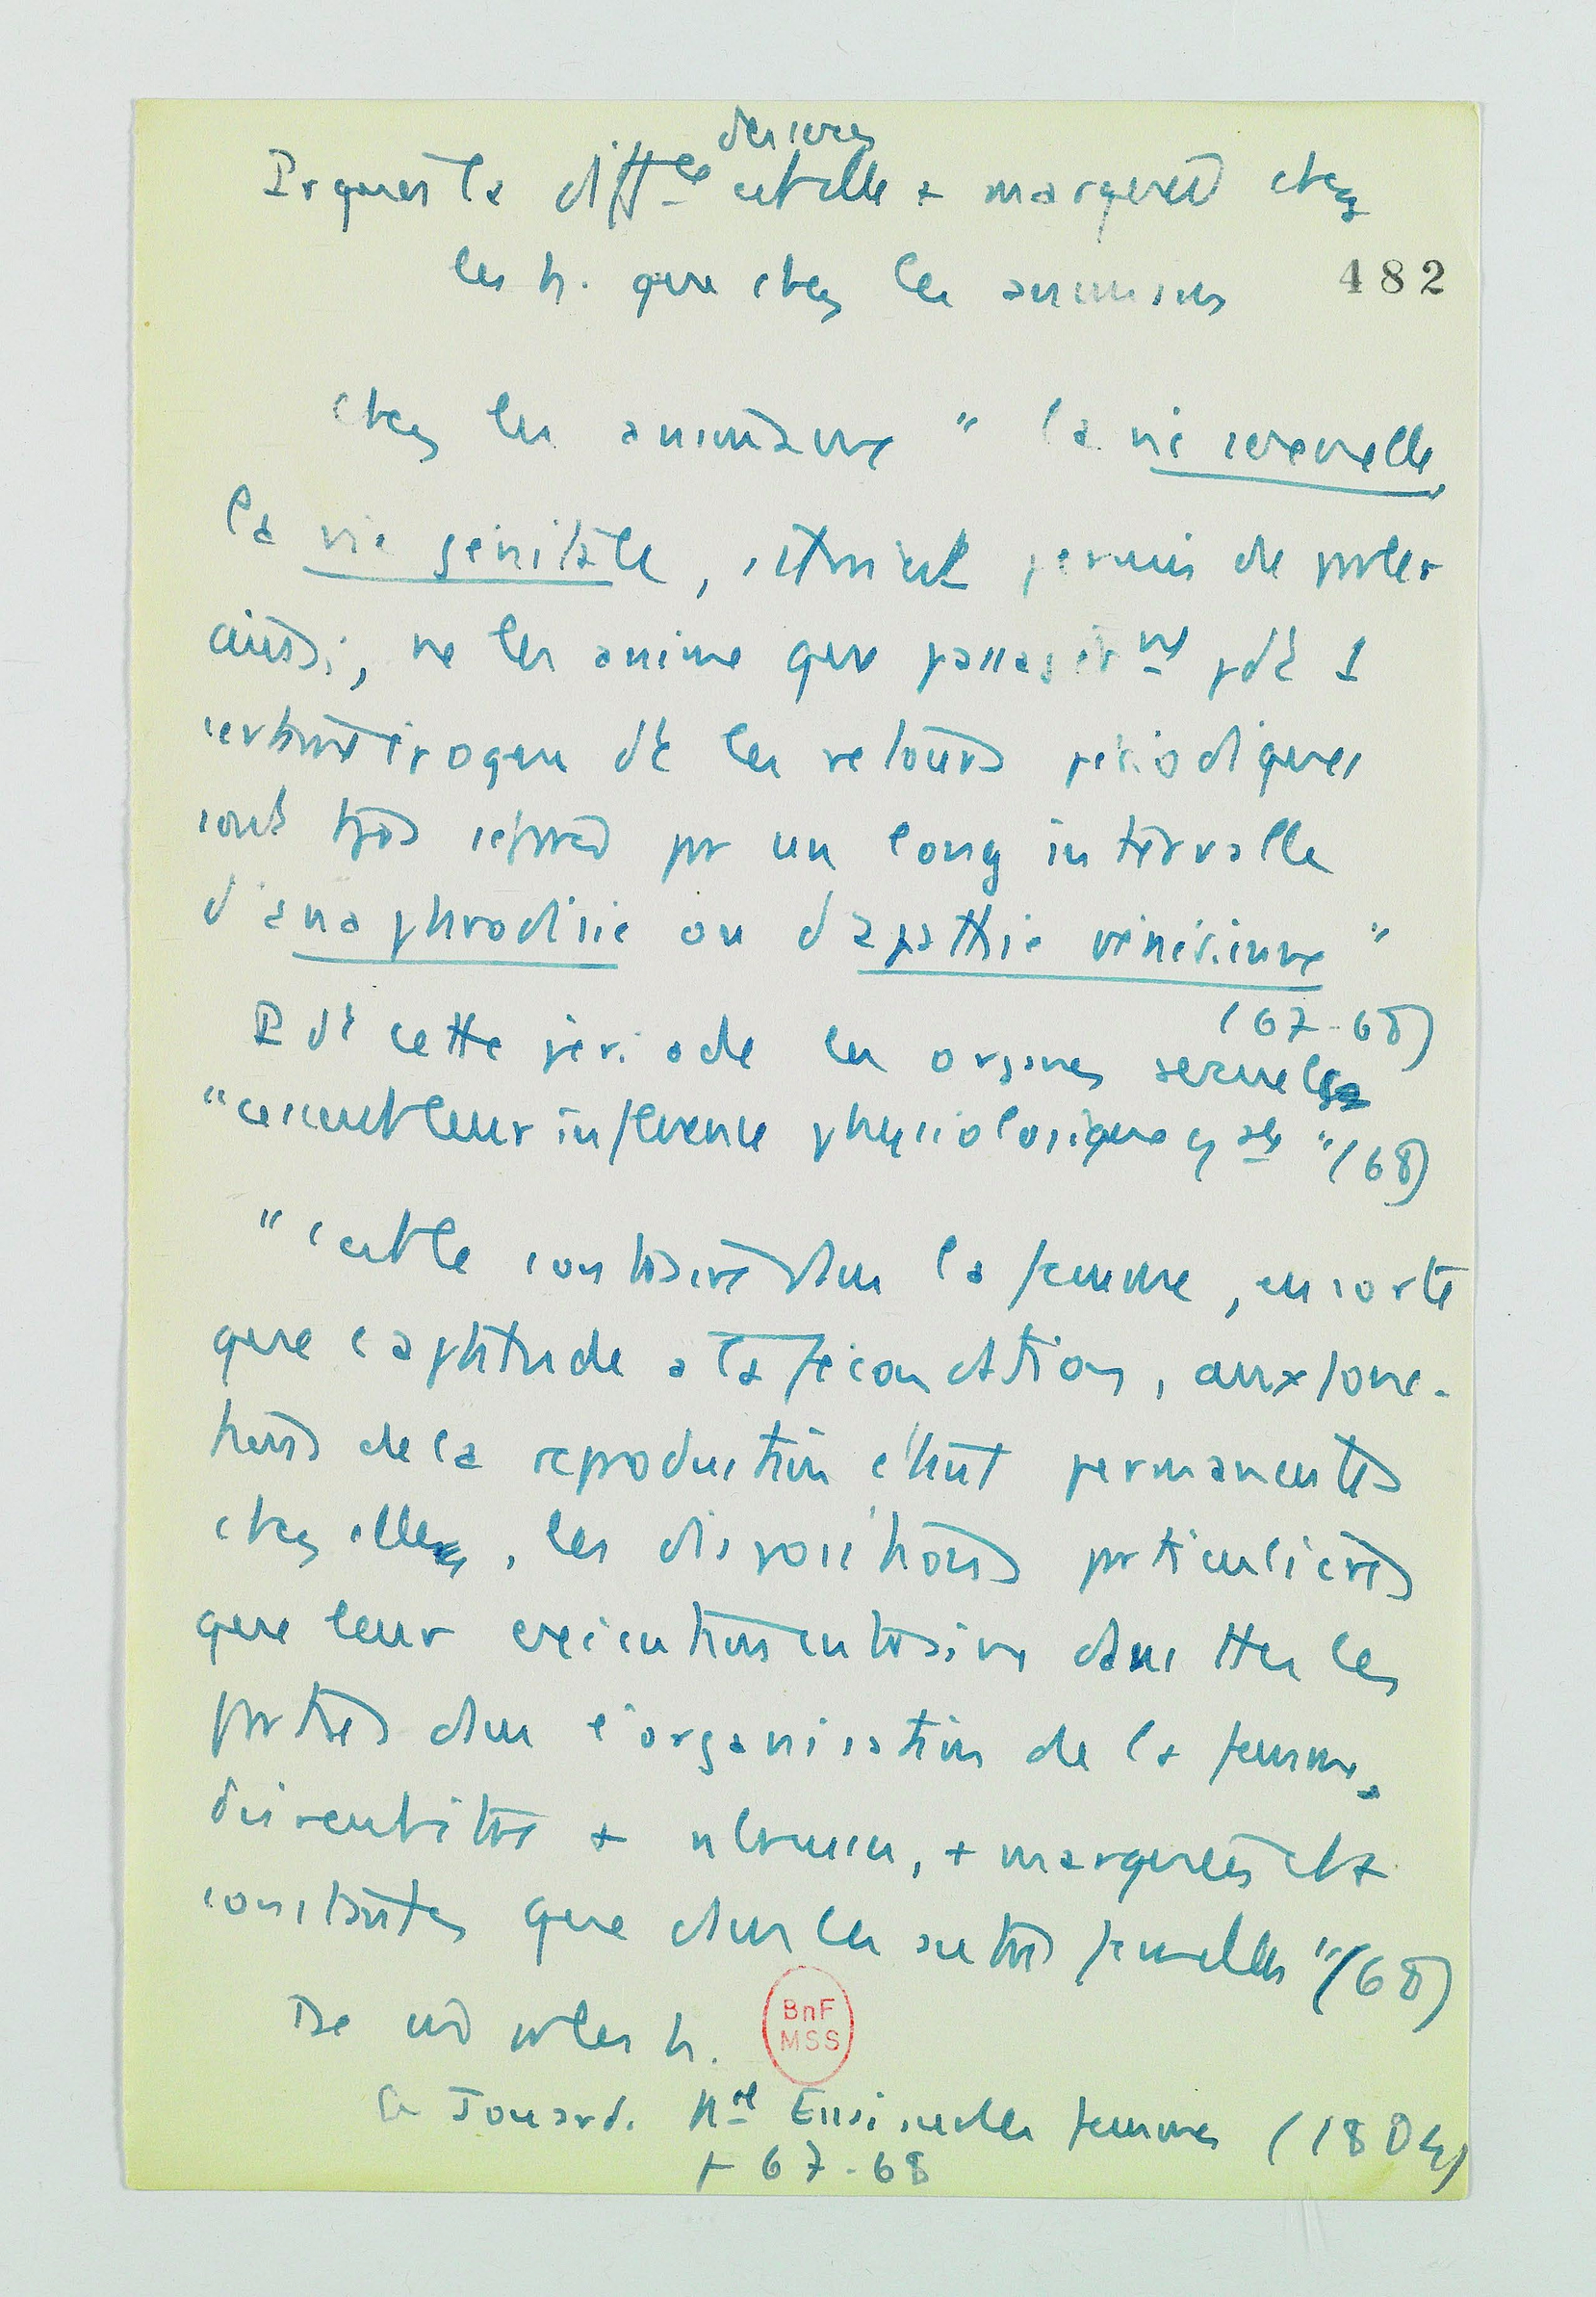 des sexes
Prquoi la diffce est elle + marquée chez
les h. que chez les animaux
482
chez les animaux " la vie sexuelle,
la vie génitale, s'il est permis de parler
ainsi, ne les anime que passagèrmt pdt 1
certaine époque dt les retours périodiques
sont tjrs séparés par un long intervalle
d'anaphrodisie ou d'apathie vénérienne "
(67-68)
Pdt cette période les organes sexuels
"cessent leur influence physiologique
"(68)
" c'est le contraire dans la femme, en sorte
que l'aptitude à la fécondation, aux fonc-
tions de la reproduction étant permanentes
chez elle, les dispositions particulières
que leur exécution entraîne dans ttes les
parties dans l'organisation de la femme,
doivent être + nbreuses, + marquées et +
constantes que dans les autres femelles "(68)
les h.
BnF
MSS
Jouard. Nel Essai sur les femmes (1804)
p 67-68